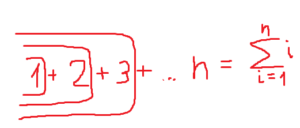 1 + 2 + 3 + ... n = \sum_{i=1}^{n} i